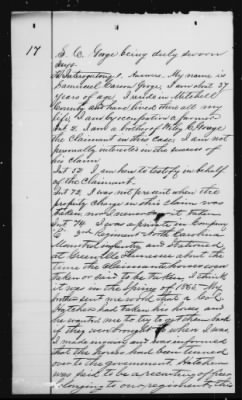 17
S. C. Gouge being duly sworn
says.
To Interrogatory 1. Answers. My name is
Samuel Carson Gouge, I am about 37
years of age I reside in Mitchell
County and have lived there all my
life, I am by occupation a farmer
Int 2. I am a brother of Wiley C. Gouge
the Claimant in this case. I am not
personally interested in the success of
his claim
Int 52 I am here to testify in behalf
of the Claimant.
Int 72, I was not present when the
property charge in this claim was
taken nor I never saw it taken
Int 74 I was a private in Company
E 3rd Regiment North Carolina
Mounted infantry and stationed
at Greenville Tennessee about the
time the claimants horse was
taken or said to be taken I think
it was in the Spring of 1865 - My
brother sent me word that a Col.
had taken his horses and
he wanted me to try to get them back
if they were brought when I was,
I made enquiry and was informed
that the horses had been turned
over to the government
was said to be a recruiting officer
belonging to our regiment, this